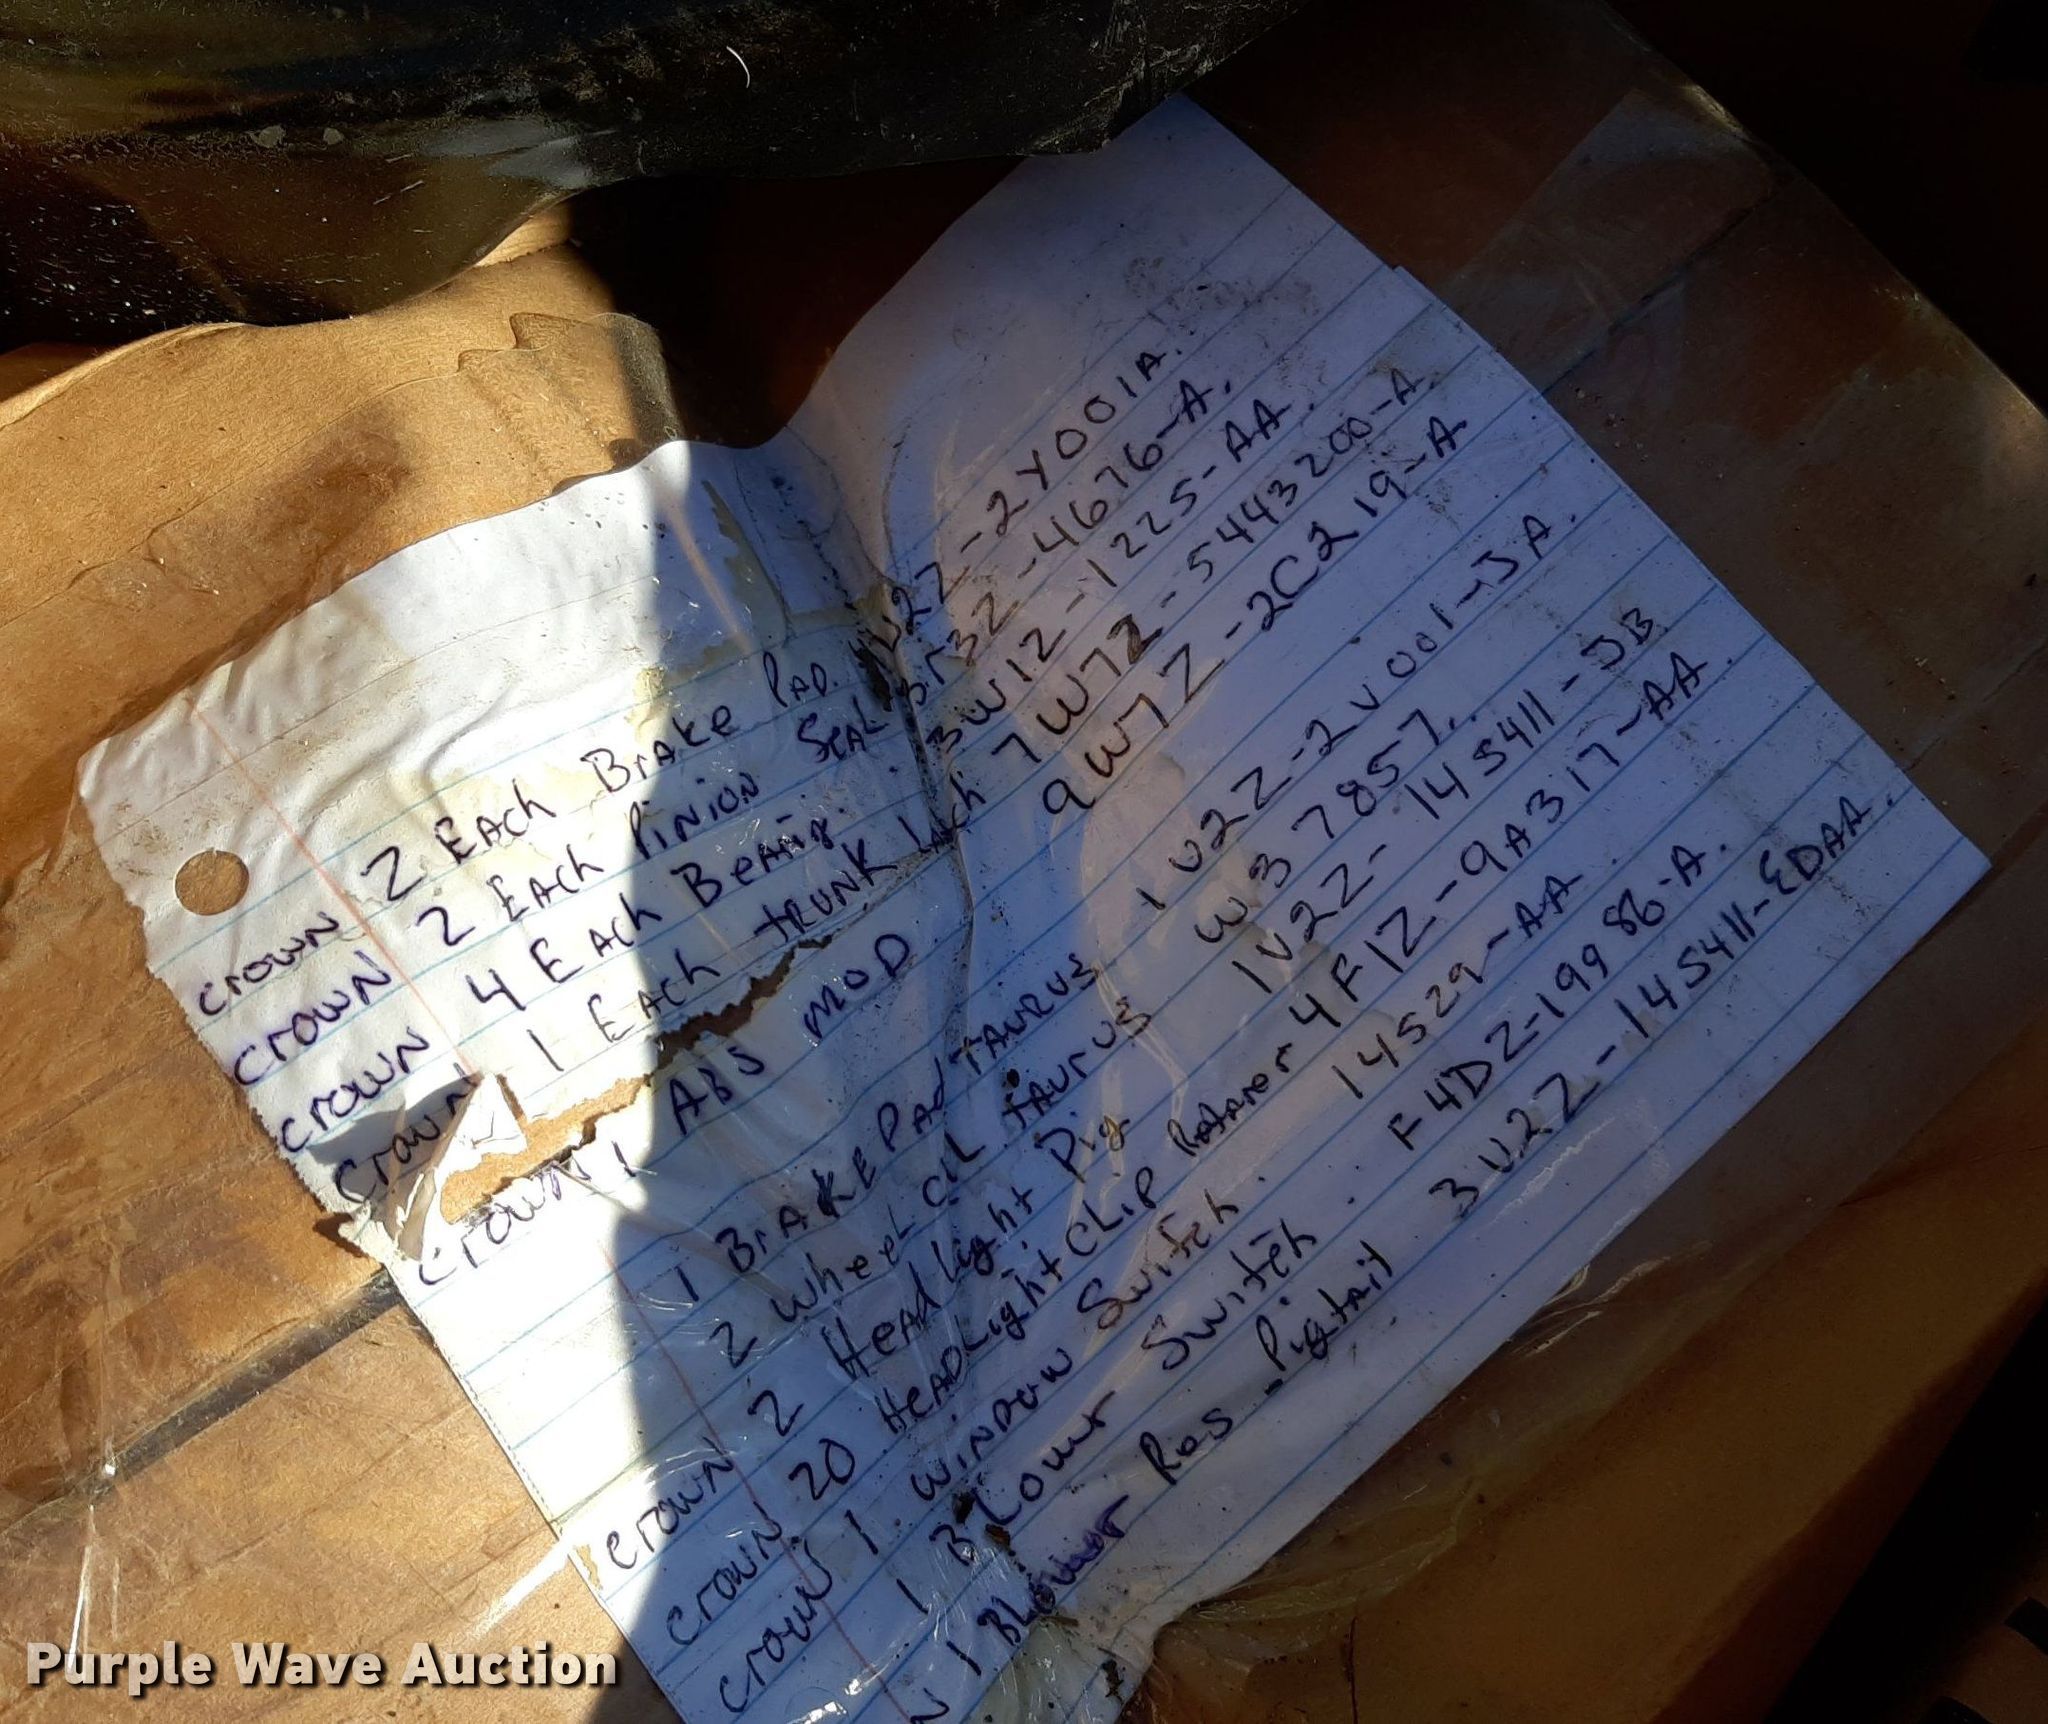 crown 2 Each Brake Pad. 1V2Z-2Y001A.
crown 2 Each Pinion Seal 3R3Z-4676-A.
crown 4 Each Bearing. 3W1Z-1225-AA.
crown 1 Each trunk lach 7W7Z-5443200-A.
crown 1 ABS MOD 9W7Z-2C219-A
1 BrAKE Pad TAURUS 1U2Z-2V001-JA.
2 wheel CIL TAURUS W37857.
crown 2 Headlight Pig 1V2Z-14S411-JB
crown 20 HeadLight CLIP 4F1Z-9A317-AA.
crown 1 window Switch. 14529-AA
1 BLower Switch. F4DZ-19986-A.
N 1 Blower Res Pigtail 3U2Z-14S411-EDAA.
Purple Wave Auction